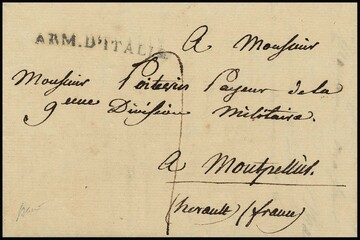 ARM. D'ITALIE
A Monsieur
Monsieur Poitevin Payeur de la
9eme Division militaire.
A Montpellier.
(herault) (france)